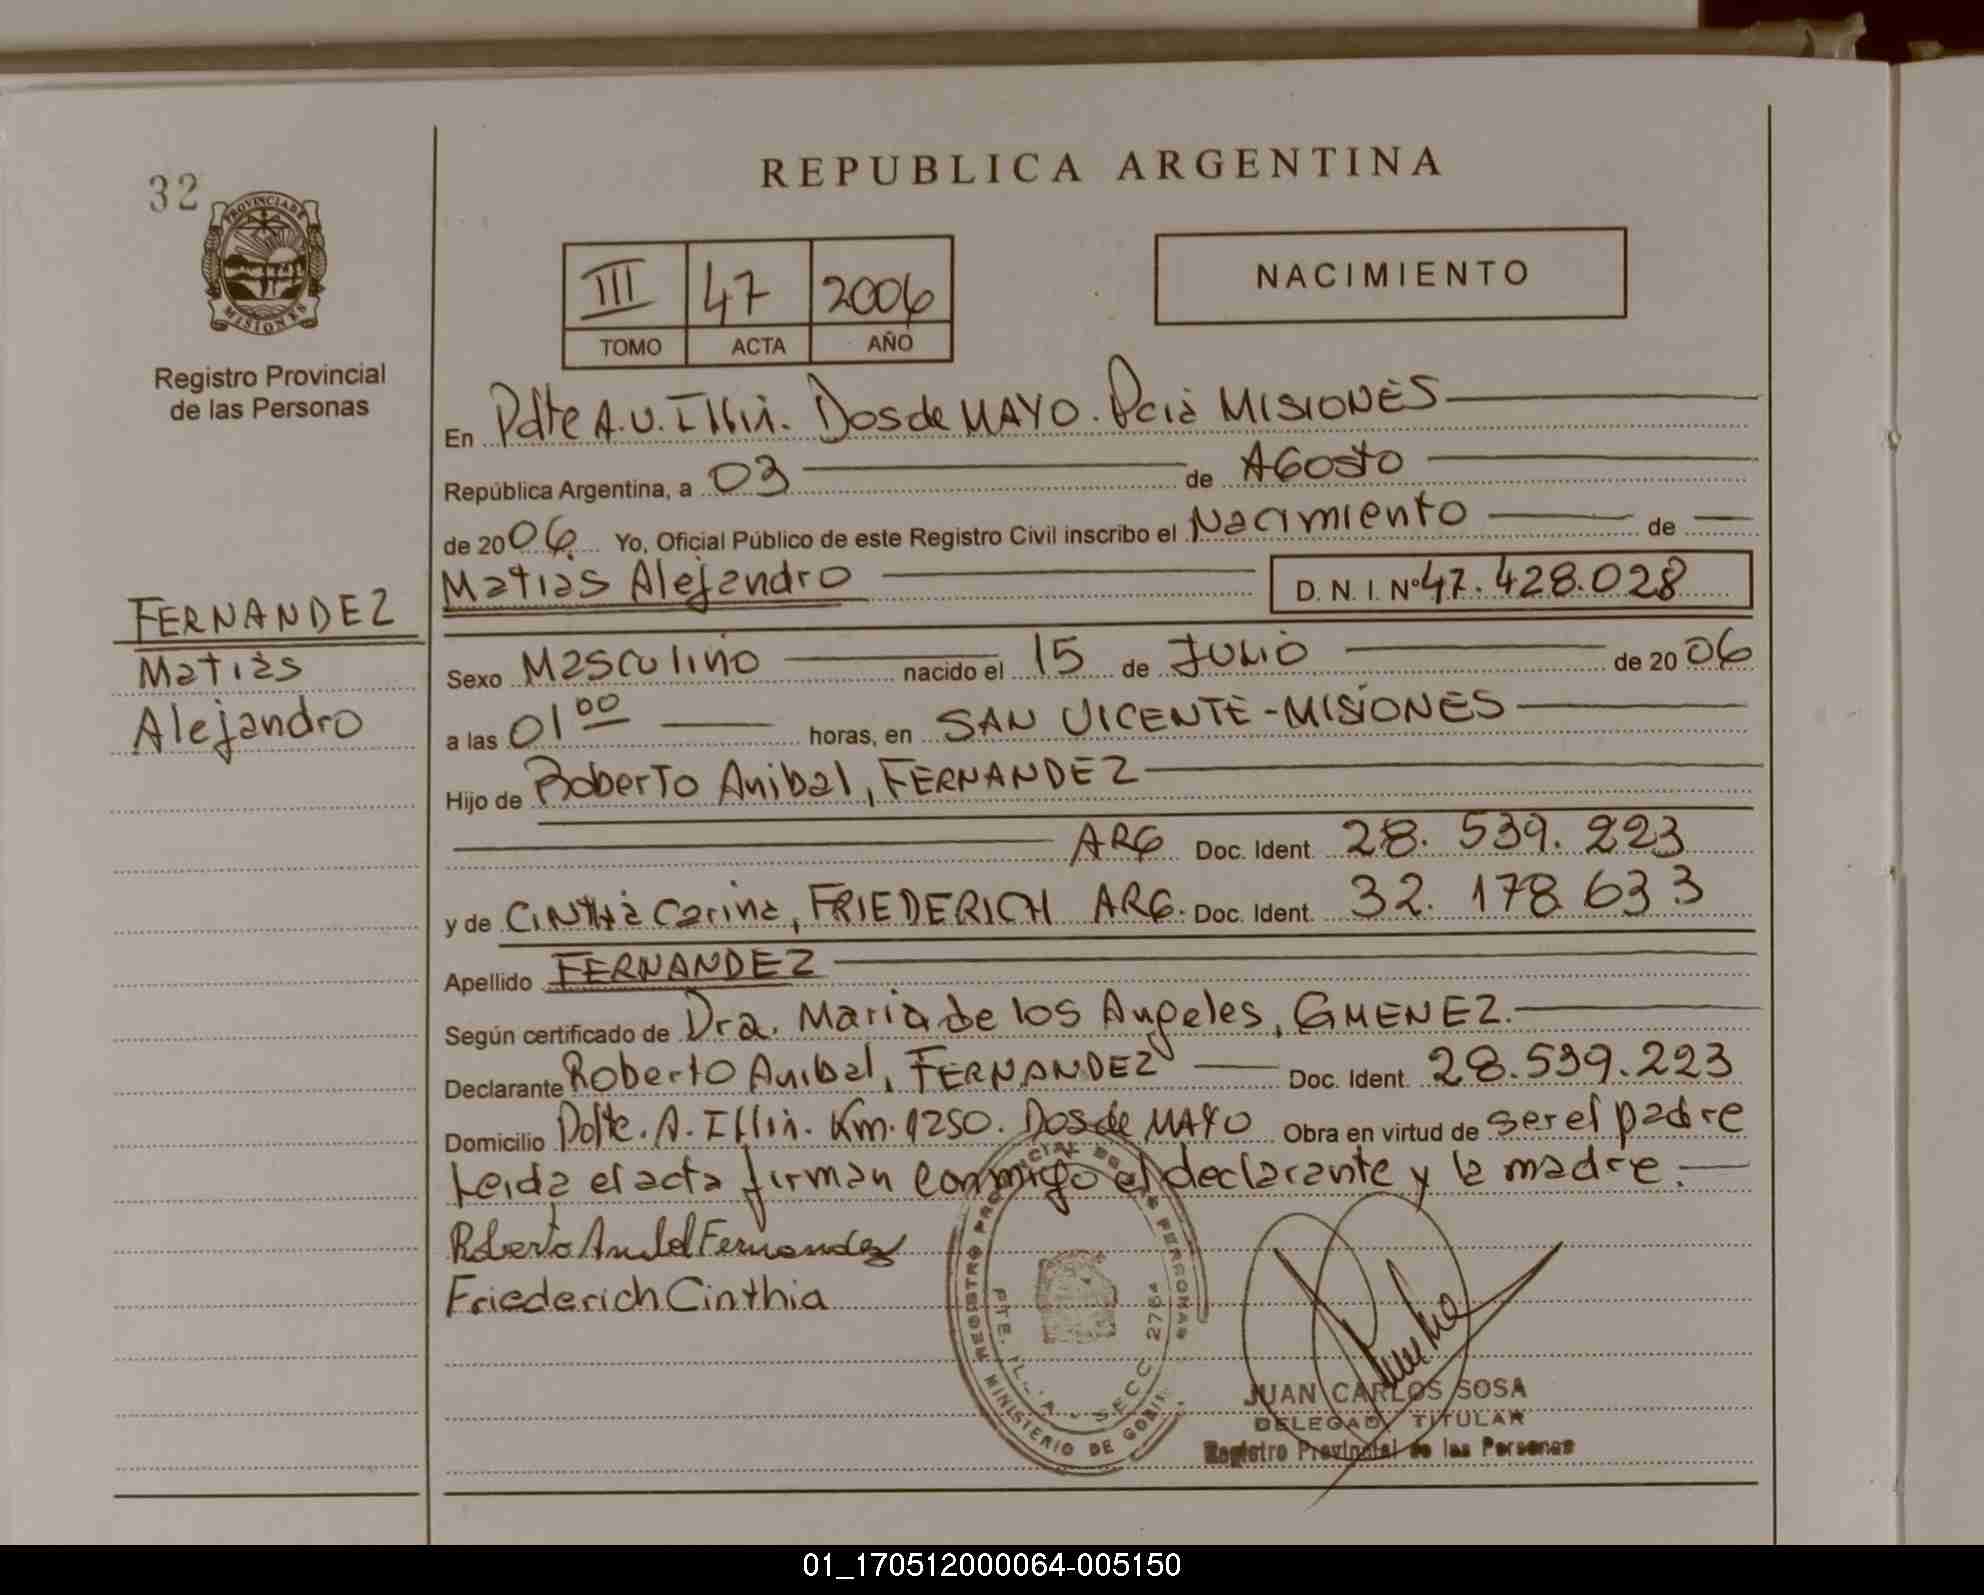 32
PROVINCIA DE
MISIONES
Registro Provincial
de las Personas
FERNANDEZ
Matias
Alejandro
REPUBLICA ARGENTINA
III 47 2006
TOMO ACTA AÑO
NACIMIENTO
En Pdte A.U. Illia. Dos de MAYO. Pcia MISIONES
República Argentina, a 03 de AGosto
de 2006. Yo, Oficial Público de este Registro Civil inscribo el Nacimiento de
Matias Alejandro D. N. I. Nº 47.428.028
Sexo Masculino nacido el 15 de JULIO de 2006
a las 01 00 horas, en SAN VICENTE-MISIONES
Hijo de Roberto Anibal, FERNANDEZ
ARG Doc. Ident. 28. 539. 223
y de CINthia Carina, FRIEDERICH ARG. Doc. Ident. 32. 178 633
Apellido FERNANDEZ
Según certificado de Dra. Maria de los Angeles, GMENEZ.
Declarante Roberto Anibal, FERNANDEZ Doc. Ident. 28.539.223
Domicilio Pdte. A. Illia. Km. 1250. Dos de MAYO Obra en virtud de ser el padre
Leida el acta firman conmigo el declarante y la madre.
Roberto Anibal Fernandez
Friederich Cinthia
REGISTRO PROVINCIAL DE LAS PERSONAS
MINISTERIO DE
SECC 2764
JUAN CARLOS SOSA
DELEGADO TITULAR
Registro Provincial de las Personas
01_170512000064-005150